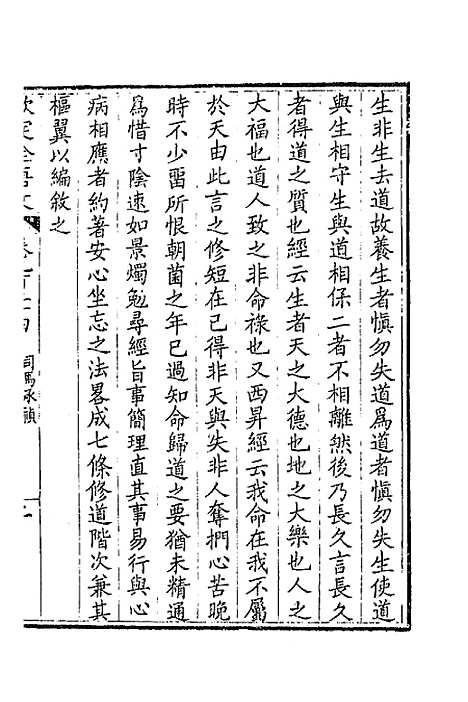 生非生去道故養生者慎勿失道為道者慎勿失生使道
與生相守生與道相保二者不相離然後乃長久言長久
者得道之質也經云生者天之大德也地之大樂也人之
大福也道人致之非命祿也又西昇經云我命在我不屬
於天由此言之修短在己得非天與失非人奪捫心苦晚
時不少畱所恨朝菌之年已過知命歸道之要猶未精通
為惜寸陰速如景燭勉尋經旨事簡理直其事易行與心
病相應者約著安心坐忘之法畧成七條修道階次兼其
樞翼以編敘之
欽定全唐文
司馬承禎